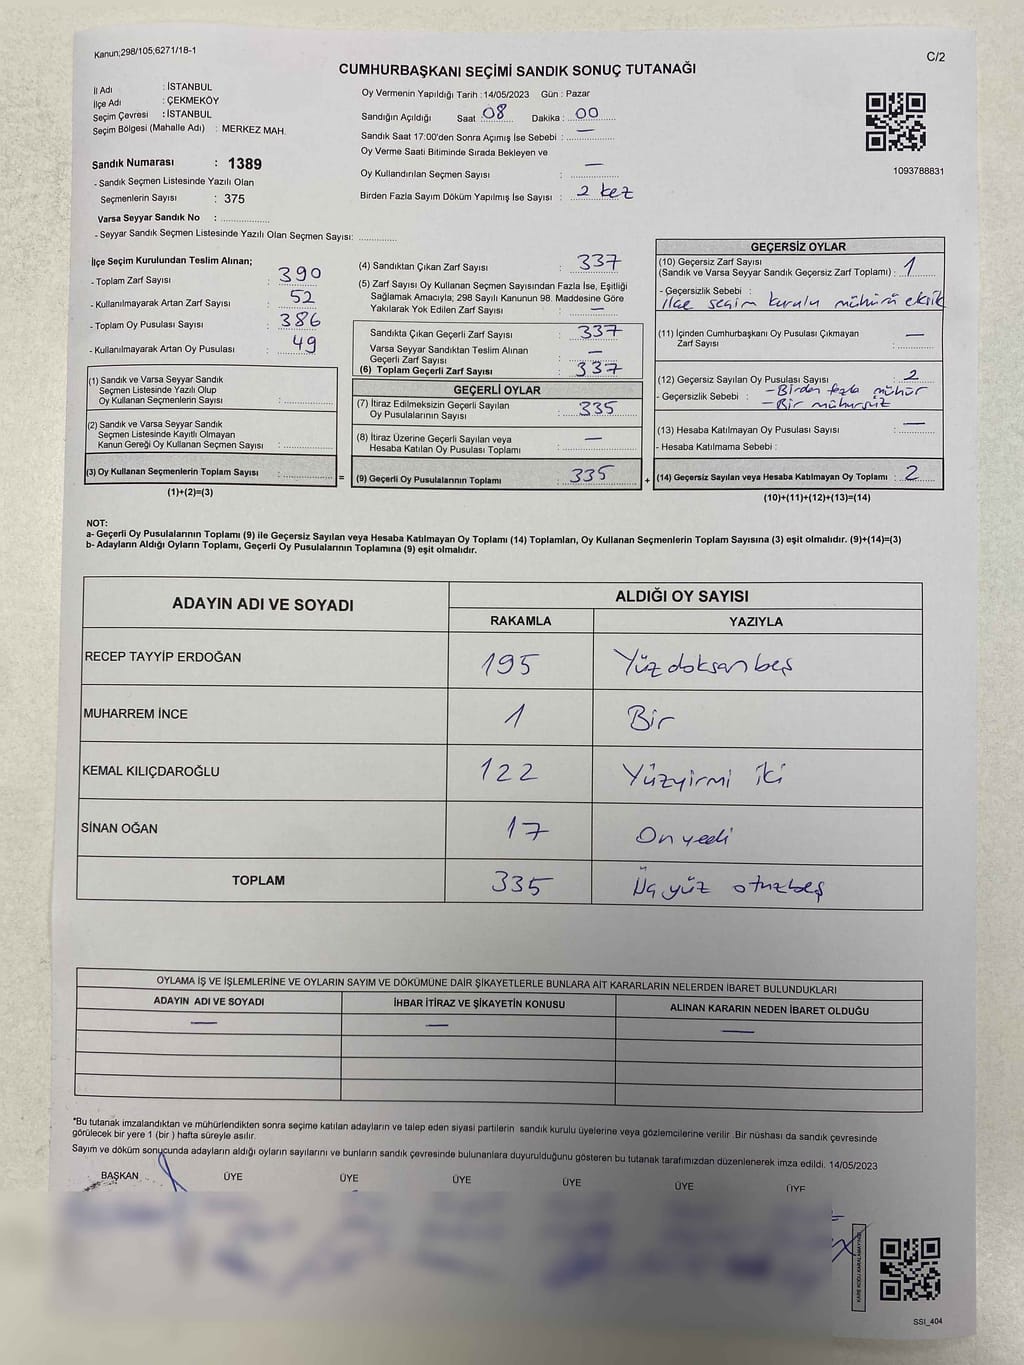 Kanun;298/105;6271/18-1
C/2
CUMHURBAŞKANI SEÇİMİ SANDIK SONUÇ TUTANAĞI
İl Adı : İSTANBUL
İlçe Adı : ÇEKMEKÖY
Seçim Çevresi : İSTANBUL
Seçim Bölgesi (Mahalle Adı) : MERKEZ MAH.
Sandık Numarası : 1389
- Sandık Seçmen Listesinde Yazılı Olan
Seçmenlerin Sayısı : 375
Varsa Seyyar Sandık No : ..................
- Seyyar Sandık Seçmen Listesinde Yazılı Olan Seçmen Sayısı: ..............
Oy Vermenin Yapıldığı Tarih : 14/05/2023 Gün : Pazar
Sandığın Açıldığı Saat 08 Dakika : 00
Sandık Saat 17:00'den Sonra Açımış İse Sebebi : —
Oy Verme Saati Bitiminde Sırada Bekleyen ve
Oy Kullandırılan Seçmen Sayısı : —
Birden Fazla Sayım Döküm Yapılmış İse Sayısı : 2 kez
1093788831
İlçe Seçim Kurulundan Teslim Alınan;
- Toplam Zarf Sayısı : 390
- Kullanılmayarak Artan Zarf Sayısı : 52
- Toplam Oy Pusulası Sayısı : 386
- Kullanılmayarak Artan Oy Pusulası : 49
(1) Sandık ve Varsa Seyyar Sandık
Seçmen Listesinde Yazılı Olup
Oy Kullanan Seçmenlerin Sayısı : ..............
(2) Sandık ve Varsa Seyyar Sandık
Seçmen Listesinde Kayıtlı Olmayan
Kanun Gereği Oy Kullanan Seçmen Sayısı : ..............
(3) Oy Kullanan Seçmenlerin Toplam Sayısı : ..............
(1)+(2)=(3)
=
(4) Sandıktan Çıkan Zarf Sayısı : 337
(5) Zarf Sayısı Oy Kullanan Seçmen Sayısından Fazla İse, Eşitliği
Sağlamak Amacıyla; 298 Sayılı Kanunun 98. Maddesine Göre
Yakılarak Yok Edilen Zarf Sayısı : —
Sandıkta Çıkan Geçerli Zarf Sayısı : 337
Varsa Seyyar Sandıktan Teslim Alınan
Geçerli Zarf Sayısı : —
(6) Toplam Geçerli Zarf Sayısı : 337
GEÇERLİ OYLAR
(7) İtiraz Edilmeksizin Geçerli Sayılan
Oy Pusulalarının Sayısı : 335
(8) İtiraz Üzerine Geçerli Sayılan veya
Hesaba Katılan Oy Pusulası Toplamı : —
(9) Geçerli Oy Pusulalarının Toplamı : 335
+
GEÇERSİZ OYLAR
(10) Geçersiz Zarf Sayısı
(Sandık ve Varsa Seyyar Sandık Geçersiz Zarf Toplamı) : 1
- Geçersizlik Sebebi :
ilçe seçim kurulu mührü eksik
(11) İçinden Cumhurbaşkanı Oy Pusulası Çıkmayan
Zarf Sayısı : —
(12) Geçersiz Sayılan Oy Pusulası Sayısı : 2
- Geçersizlik Sebebi : - Birden fazla mühür
- Bir mühürsüz
(13) Hesaba Katılmayan Oy Pusulası Sayısı : —
- Hesaba Katılmama Sebebi :
(14) Geçersiz Sayılan veya Hesaba Katılmayan Oy Toplamı : 2
(10)+(11)+(12)+(13)=(14)
NOT:
a- Geçerli Oy Pusulalarının Toplamı (9) ile Geçersiz Sayılan veya Hesaba Katılmayan Oy Toplamı (14) Toplamları, Oy Kullanan Seçmenlerin Toplam Sayısına (3) eşit olmalıdır. (9)+(14)=(3)
b- Adayların Aldığı Oyların Toplamı, Geçerli Oy Pusulalarının Toplamına (9) eşit olmalıdır.
ADAYIN ADI VE SOYADI
ALDIĞI OY SAYISI
RAKAMLA YAZIYLA
RECEP TAYYİP ERDOĞAN 195 Yüzdoksanbeş
MUHARREM İNCE 1 Bir
KEMAL KILIÇDAROĞLU 122 Yüzyirmi iki
SİNAN OĞAN 17 Onyedi
TOPLAM 335 Üçyüz otuzbeş
OYLAMA İŞ VE İŞLEMLERİNE VE OYLARIN SAYIM VE DÖKÜMÜNE DAİR ŞİKAYETLERLE BUNLARA AİT KARARLARIN NELERDEN İBARET BULUNDUKLARI
ADAYIN ADI VE SOYADI İHBAR İTİRAZ VE ŞİKAYETİN KONUSU ALINAN KARARIN NEDEN İBARET OLDUĞU
— — —
*Bu tutanak imzalandıktan ve mühürlendikten sonra seçime katılan adayların ve talep eden siyasi partilerin sandık kurulu üyelerine veya gözlemcilerine verilir .Bir nüshası da sandık çevresinde
görülecek bir yere 1 (bir ) hafta süreyle asılır.
Sayım ve döküm sonucunda adayların aldığı oyların sayılarını ve bunların sandık çevresinde bulunanlara duyurulduğunu gösteren bu tutanak tarafımızdan düzenlenerek imza edildi. 14/05/2023
BAŞKAN ÜYE ÜYE ÜYE ÜYE ÜYE ÜYE
KARE KODU KARALAMAYINIZ
SSI_404